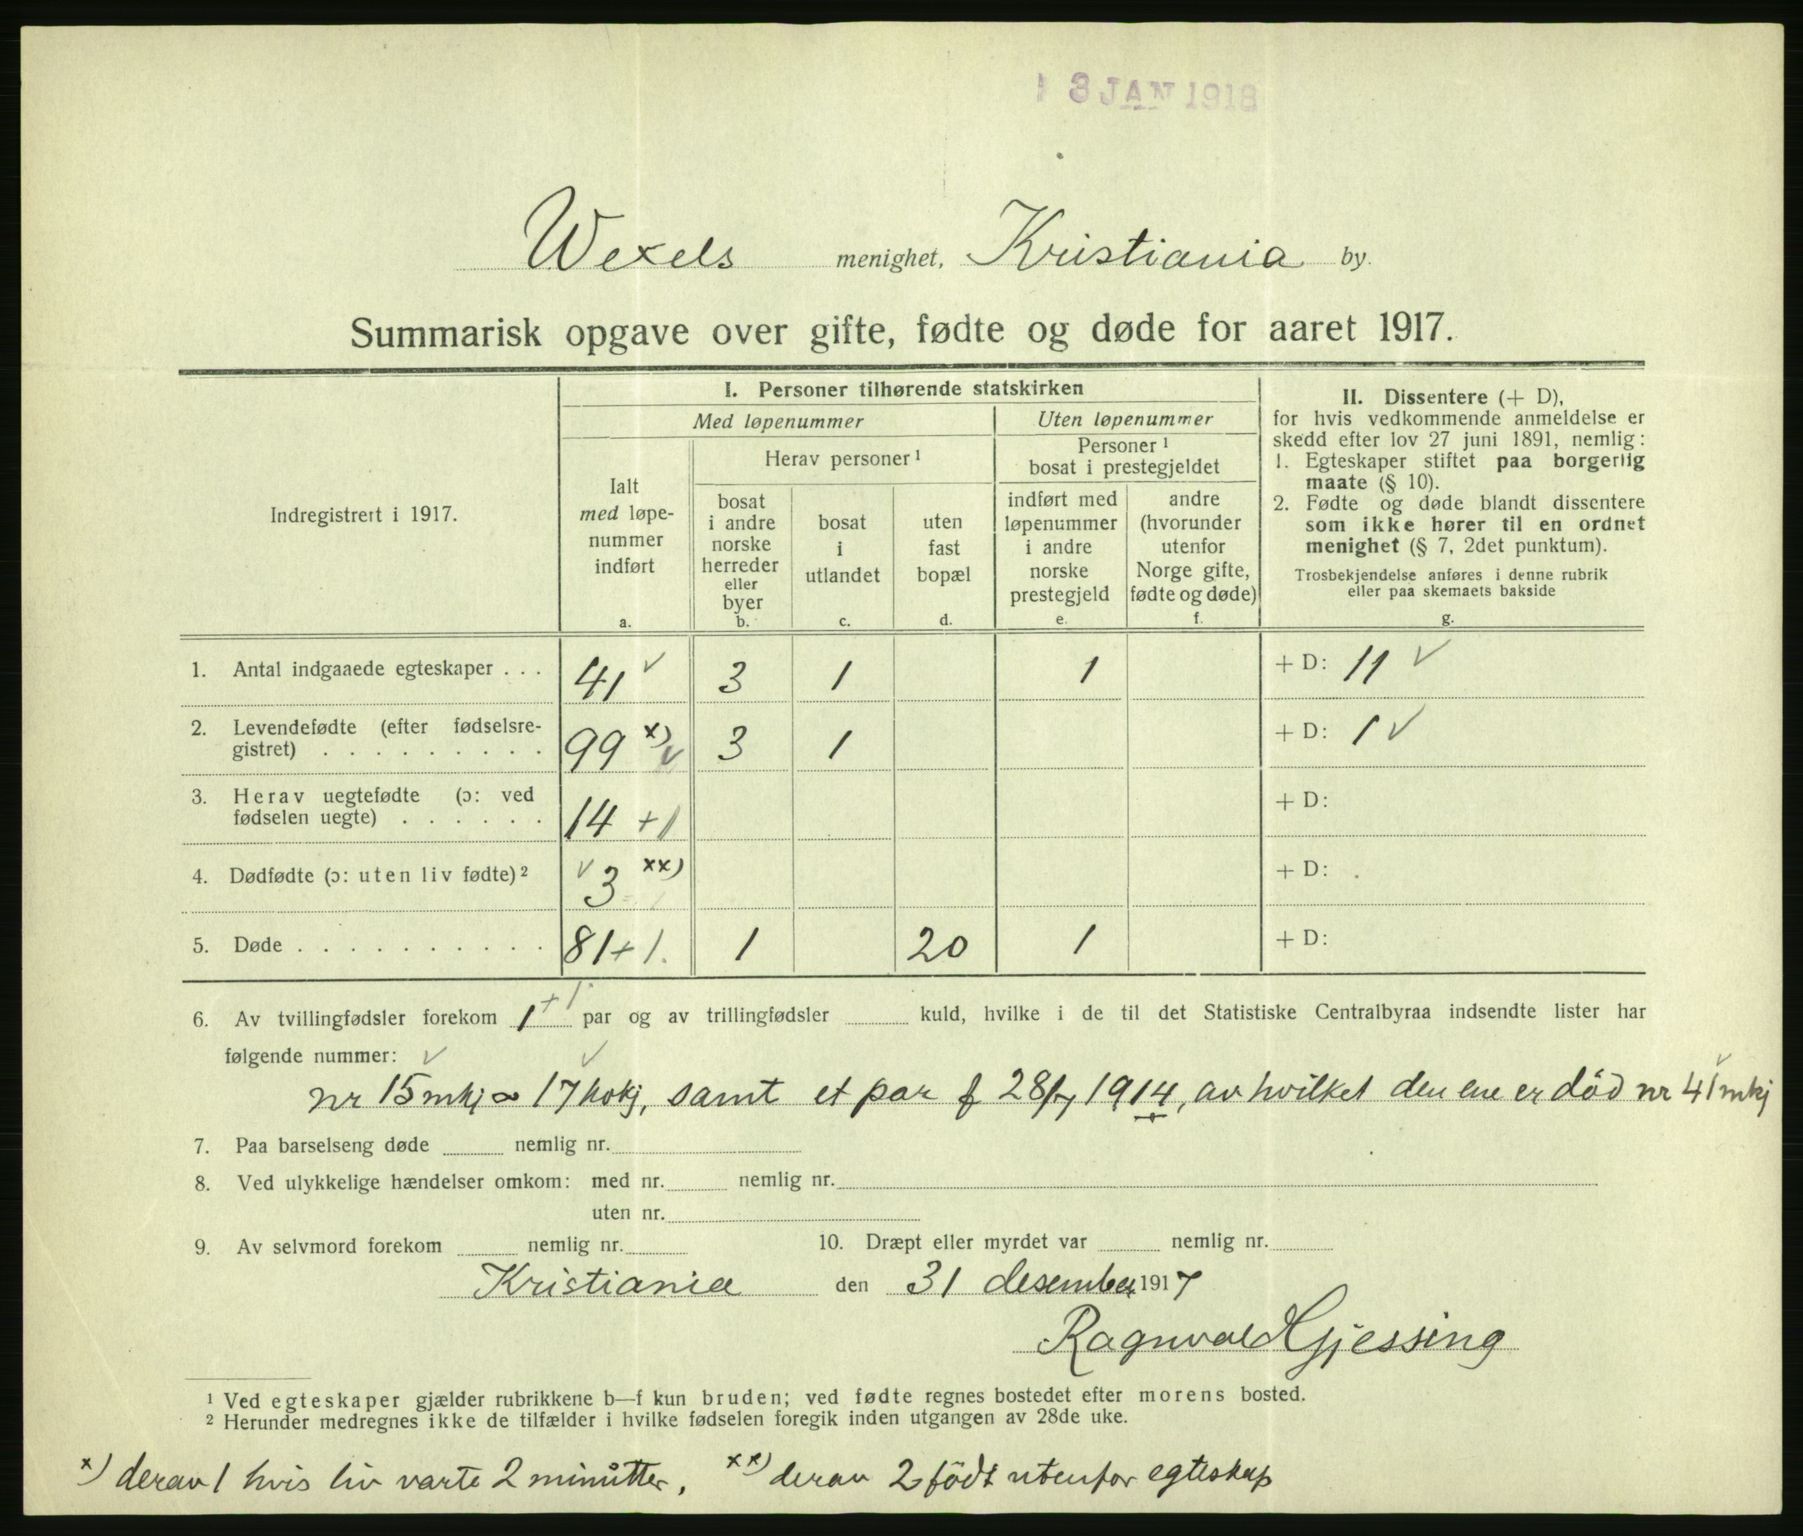 3 JAN 1918
Wexels menighet, Kristiania by.
Summarisk opgave over gifte, fødte og døde for aaret 1917.
Indregistrert i 1917.
I. Personer tilhørende statskirken
Med løpenummer
Uten løpenummer
Herav personer¹
Personer¹
bosat i prestegjeldet
Ialt
med løpe-
nummer
indført
a.
bosat
i andre
norske
herreder
eller
byer
b.
bosat
i
utlandet
c.
uten
fast
bopæl
d.
indført med
løpenummer
i andre
norske
prestegjeld
e.
andre
(hvorunder
utenfor
Norge gifte,
fødte og døde)
f.
II. Dissentere (+ D),
for hvis vedkommende anmeldelse er
skedd efter lov 27 juni 1891, nemlig:
1. Egteskaper stiftet paa borgerlig
maate (§ 10).
2. Fødte og døde blandt dissentere
som ikke hører til en ordnet
menighet (§ 7, 2det punktum).
Trosbekjendelse anføres i denne rubrik
eller paa skemaets bakside
g.
1. Antal indgaaede egteskaper . . . 41 ✓ 3 1 1 + D: 11 ✓
2. Levendefødte (efter fødselsre-
gistret) . . . . . . . . . 99 x) ✓ 3 1 + D: 1 ✓
3. Herav uegtefødte (ɔ: ved
fødselen uegte) . . . . . . 14 + 1 + D:
4. Dødfødte (ɔ: uten liv fødte)² ✓ 3 xx) + D:
5. Døde . . . . . . . . . . 81 + 1. 1 20 1 + D:
6. Av tvillingfødsler forekom 1 + 1. par og av trillingfødsler kuld, hvilke i de til det Statistiske Centralbyraa indsendte lister har
følgende nummer:
nr 15 mkj ∞ 17 kokj, samt et par f 28/7 1914, av hvilket den ene er död nr 41 mkj
7. Paa barselseng døde nemlig nr.
8. Ved ulykkelige hændelser omkom: med nr. nemlig nr.
uten nr.
9. Av selvmord forekom nemlig nr. 10. Dræpt eller myrdet var nemlig nr.
Kristiania den 31 desember 1917
Ragnvald Gjessing
¹ Ved egteskaper gjælder rubrikkene b—f kun bruden; ved fødte regnes bostedet efter morens bosted.
² Herunder medregnes ikke de tilfælder i hvilke fødselen foregik inden utgangen av 28de uke.
x) derav 1 hvis liv varte 2 minutter, xx) derav 2 födt utenfor egteskap